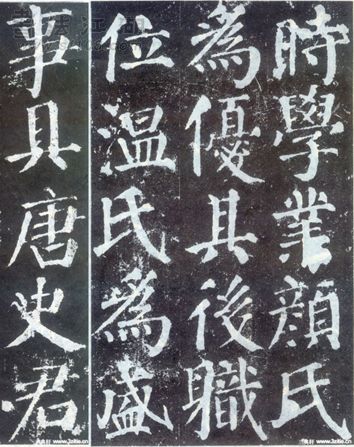 時學業顔氏
為優其後職
位温氏為盛
事具唐史君